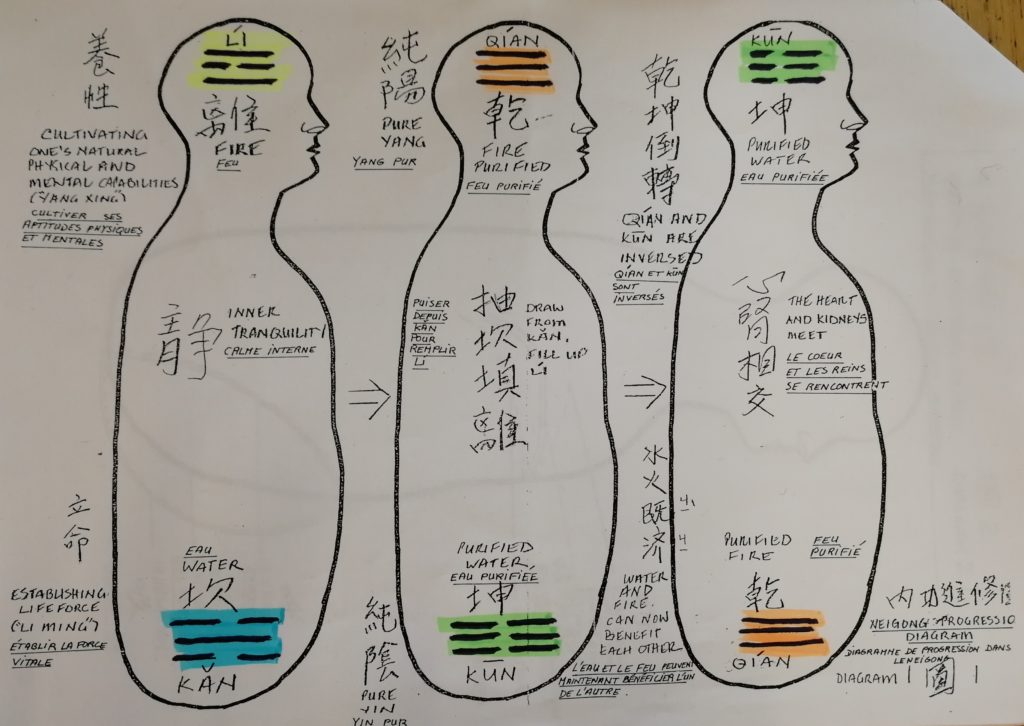 養
性
CULTIVATING
ONE'S NATURAL
PHYSICAL AND
MENTAL CAPABILITIES
("YANG XING")
CULTIVER SES
APTITUDES PHYSIQUES
ET MENTALES
LÍ
離
FIRE
FEU
靜
INNER
TRANQUILITY
CALME INTERNE
立
命
ESTABLISHING
LIFE FORCE
("LI MING")
ÉTABLIR LA FORCE
VITALE
EAU
WATER
坎
KǍN
純
陽
PURE
YANG
YANG PUR
QÍAN
乾
FIRE
PURIFIED
FEU PURIFIÉ
PUISER
DEPUIS
KǍN
POUR
REMPLIR
LÍ
抽
坎
填
離
DRAW
FROM
KǍN,
FILL UP
LÍ
純
陰
PURE
YIN
YIN PUR
PURIFIED
WATER
EAU PURIFIÉE
坤
KŪN
乾
坤
倒
轉
QÍAN AND
KŪN ARE
INVERSED
QÍAN ET KŪN
SONT
INVERSÉS
KŪN
坤
PURIFIED
WATER
EAU PURIFIÉE
心
腎
相
交
THE HEART
AND KIDNEYS
MEET
LE COEUR
ET LES REINS
SE RENCONTRENT
水
火
既
济
WATER
AND
FIRE.
CAN NOW
BENEFIT
EACH OTHER
L'EAU ET LE FEU PEUVENT
MAINTENANT BÉNÉFICIER L'UN
DE L'AUTRE.
PURIFIED
FIRE
FEU
PURIFIÉ
乾
QÍAN
内功進修
NEIGONG PROGRESSIO
DIAGRAM
DIAGRAMME DE PROGRESSION DANS
LE NEIGONG
DIAGRAM 1 圖 1